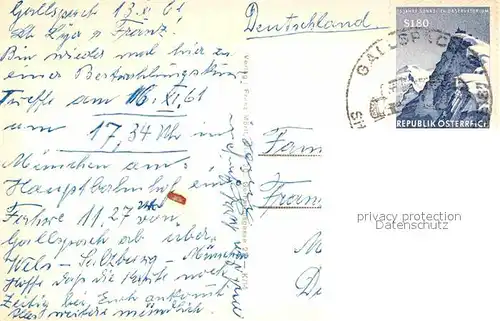 Gallspach 13.XI.61
Lb. Lya u Franz.
Bin wieder mal hier zu
einer Bestrahlungskur
Treffe am 16.XI.61
um 17,34 Uhr in
München am
Hauptbahnhof ein
Fahre 11.27 Uhr von
Gallspach ab über
Wels – Salzburg – München
Hoffe daß die Karte noch
zeitig bei Euch ankommt
Alles weitere mündlich.
Deutschland.
S1.80
REPUBLIK ÖSTERREICH
GALLSPACH
Fam
Fran
M
D
privacy protection
Datenschutz